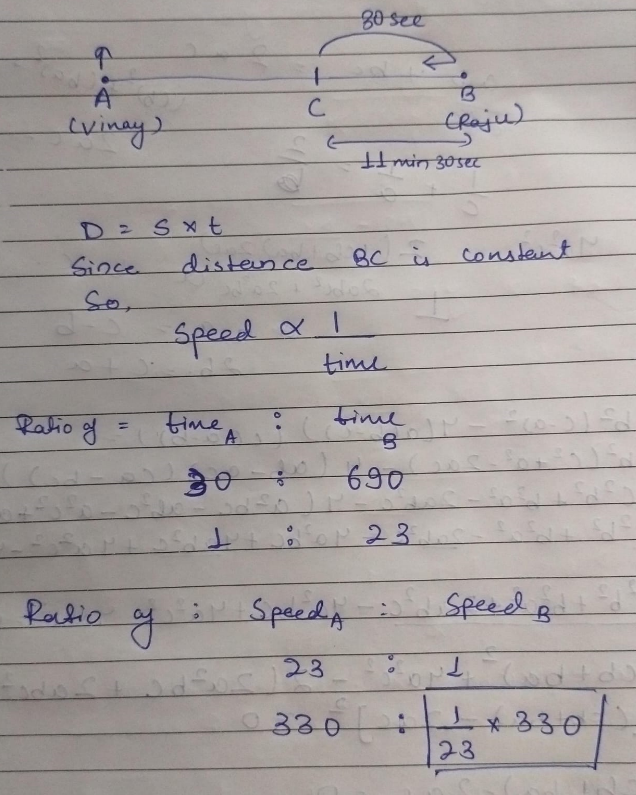 30 sec
A
C
B
(Vinay)
(Raju)
11 min 30 sec
D = S × t
Since distance BC is constant
So,
Speed ∝ 1
time
Ratio of = time A : time B
30 : 690
1 : 23
Ratio of : Speed A : Speed B
23 : 1
330 : 1/23 × 330